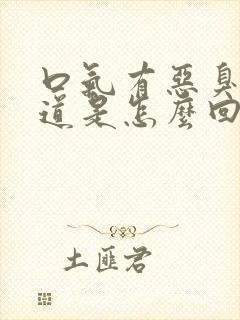 口氣有惡臭
道是怎麼回
土匪君